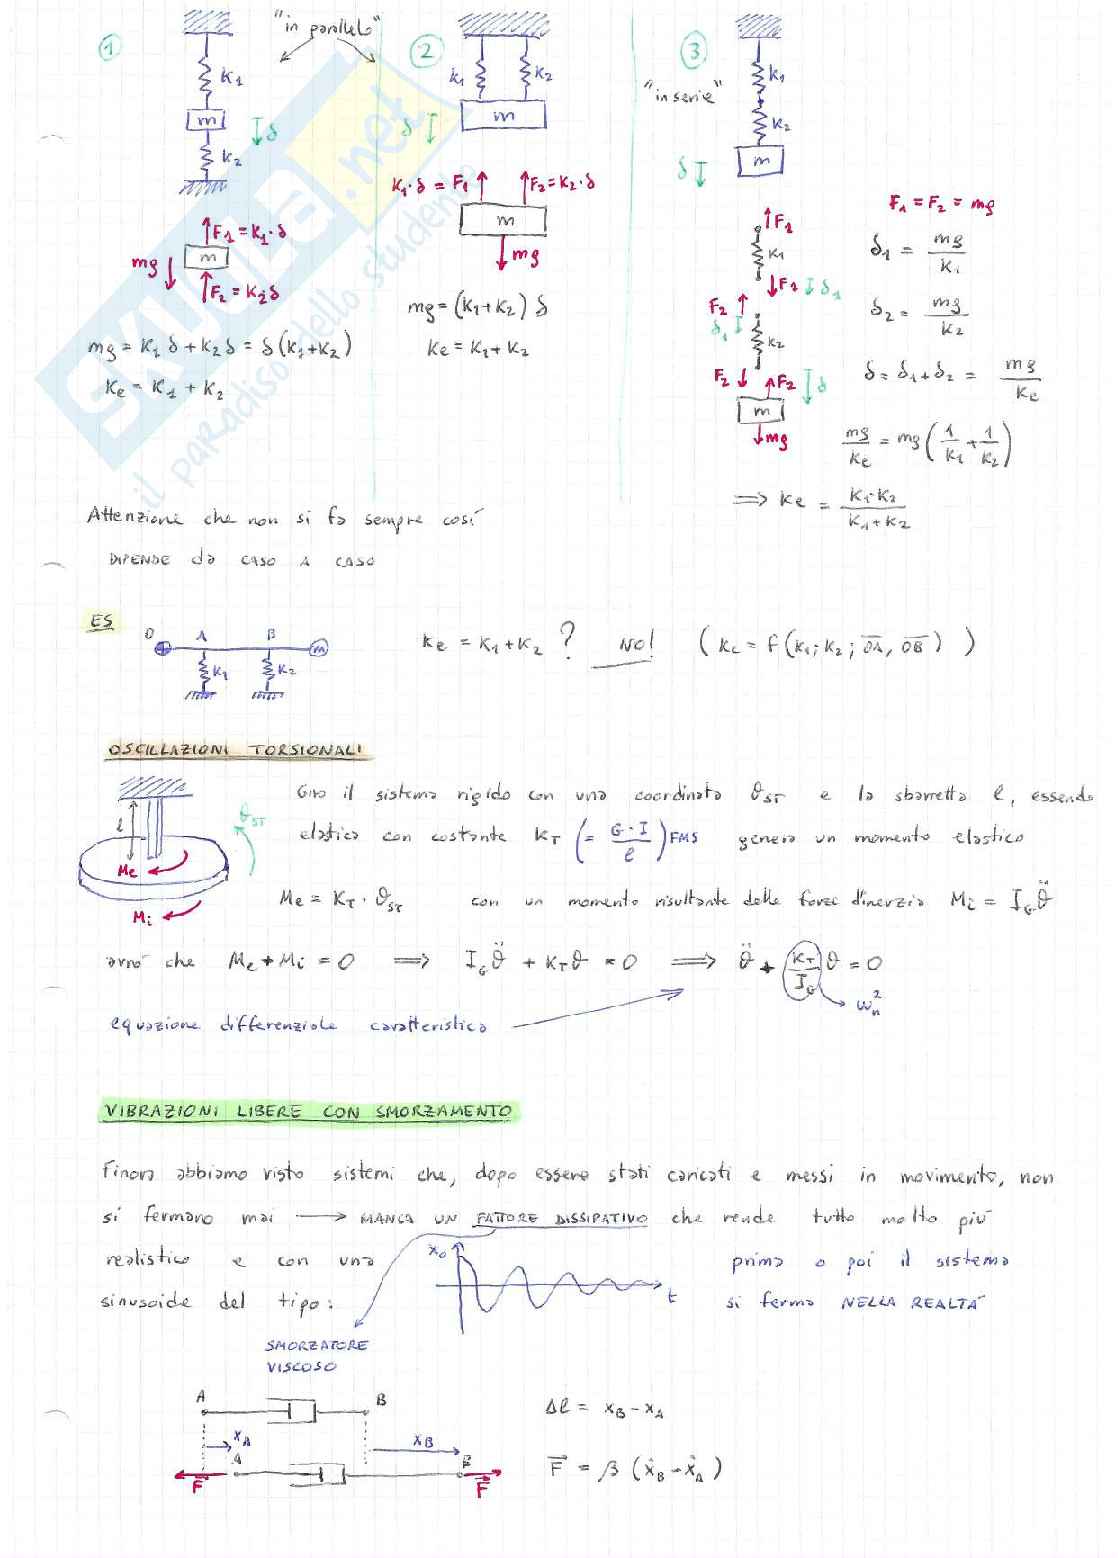 ① "in parallelo" ② ③
K₁ K₁ K₂ K₁
"in serie"
m δ δ m K₂
K₂ δ m
K₁·δ = F₁ F₂ = K₂·δ
m
F₁ = K₁·δ
mg m mg
F₂ = K₂δ
mg = K₁ δ + K₂ δ = δ (K₁+K₂)
Ke = K₁ + K₂
mg = (K₁+K₂) δ
Ke = K₁ + K₂
F₁ = F₂ = mg
F₁
K₁ δ₁ = mg/K₁
F₁ δ₁
F₂
δ₁ K₂ δ₂ = mg/K₂
F₂ F₂ δ δ = δ₁ + δ₂ = mg/Ke
m
mg mg/Ke = mg (1/K₁ + 1/K₂)
⟹ Ke = K₁·K₂/(K₁+K₂)
SKUOLA.net
il paradiso dello studente
Attenzione che non si fa sempre così
DIPENDE da CASO A CASO
ES
O A B m
K₁ K₂
Ke = K₁+K₂ ? NO! (Ke = f(K₁; K₂; OA, OB))
OSCILLAZIONI TORSIONALI
l θST
Me
Mi
Giro il sistema rigido con una coordinata θST e la sbarretta l, essendo
elastica con costante KT (= G·I/l) FMS genera un momento elastico
Me = KT · θST con un momento risultante delle forze d'inerzia Mi = IG θ̈
avrò che Me + Mi = 0 ⟹ IG θ̈ + KT θ = 0 ⟹ θ̈ + KT/IG θ = 0
ωn²
equazione differenziale caratteristica
VIBRAZIONI LIBERE CON SMORZAMENTO
Finora abbiamo visto sistemi che, dopo essere stati caricati e messi in movimento, non
si fermano mai → MANCA UN FATTORE DISSIPATIVO che rende tutto molto più
realistico e con una x₀ prima o poi il sistema
sinusoide del tipo: t si ferma NELLA REALTÀ
SMORZATORE
VISCOSO
A B Δl = xB - xA
xA xB
A B
F F F = β (ẋB - ẋA)